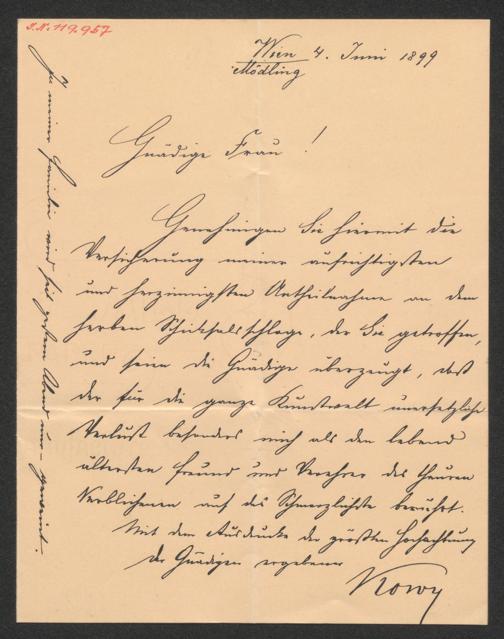 I.N. 119.957
Wien 4. Juni 1899
Mödling
Gnädige Frau!
Genehmigen Sie hiermit die
Versicherung meiner aufrichtigsten
und herzinnigsten Antheilnahme an dem
herben Schicksalsschlage, der Sie getroffen,
und seien die Gnädige überzeugt, daß
der für die ganze Kunstwelt unersetzliche
Verlust besonders mich als den lebend
ältesten Freund und Verehrer des theuren
Verblichenen auf das Schmerzlichste berührt.
Mit dem Ausdrucke der größten Hochachtung
der Gnädigen ergebener
In meiner Familie wird seit gestern Abend nur – geweint.